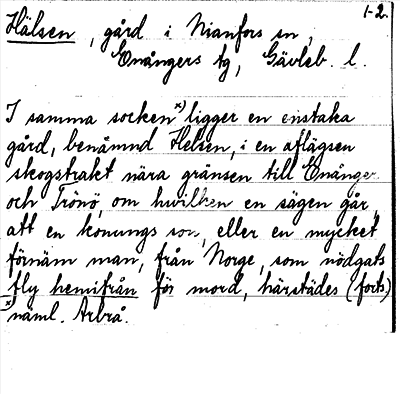 1-2.
Hälsen, gård i Nianfors sn,
Enångers tg, Gävleb. l.
I samma socken x) ligger en enstaka
gård, benämnd Helsen, i en aflägsen
skogstrakt nära gränsen till Enånger
och Trönö, om hwilken en sägen går,
att en konungs son, eller en mycket
förnäm man, från Norge, som nödgats
fly hemifrån för mord, härstädes (forts.)
x) näml. Arbrå.